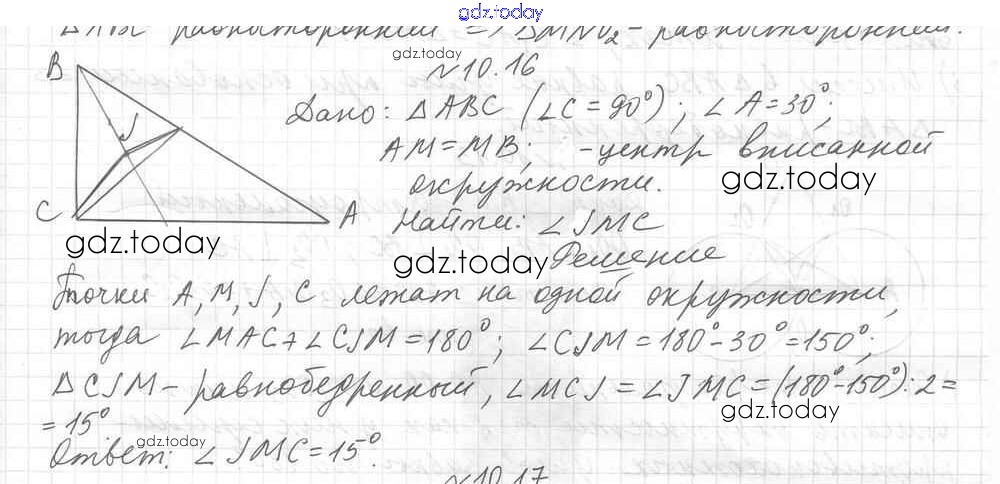 gdz.today
ΔABC равносторонний => ΔMNO₂ - равносторонний.
gdz.today
№10.16
B
J
C
A
Дано: ΔABC (∠C = 90°); ∠A = 30°;
AM = MB; - центр вписанной
окружности.
gdz.today
Найти: ∠JMC
gdz.today
gdz.today
Решение
Точки A, M, J, C лежат на одной окружности,
тогда ∠MAC + ∠CJM = 180°; ∠CJM = 180° - 30° = 150°;
ΔCJM - равнобедренный, ∠MCJ = ∠JMC = (180° - 150°) : 2 =
= 15°
gdz.today
gdz.today
Ответ: ∠JMC = 15°.
№10.17